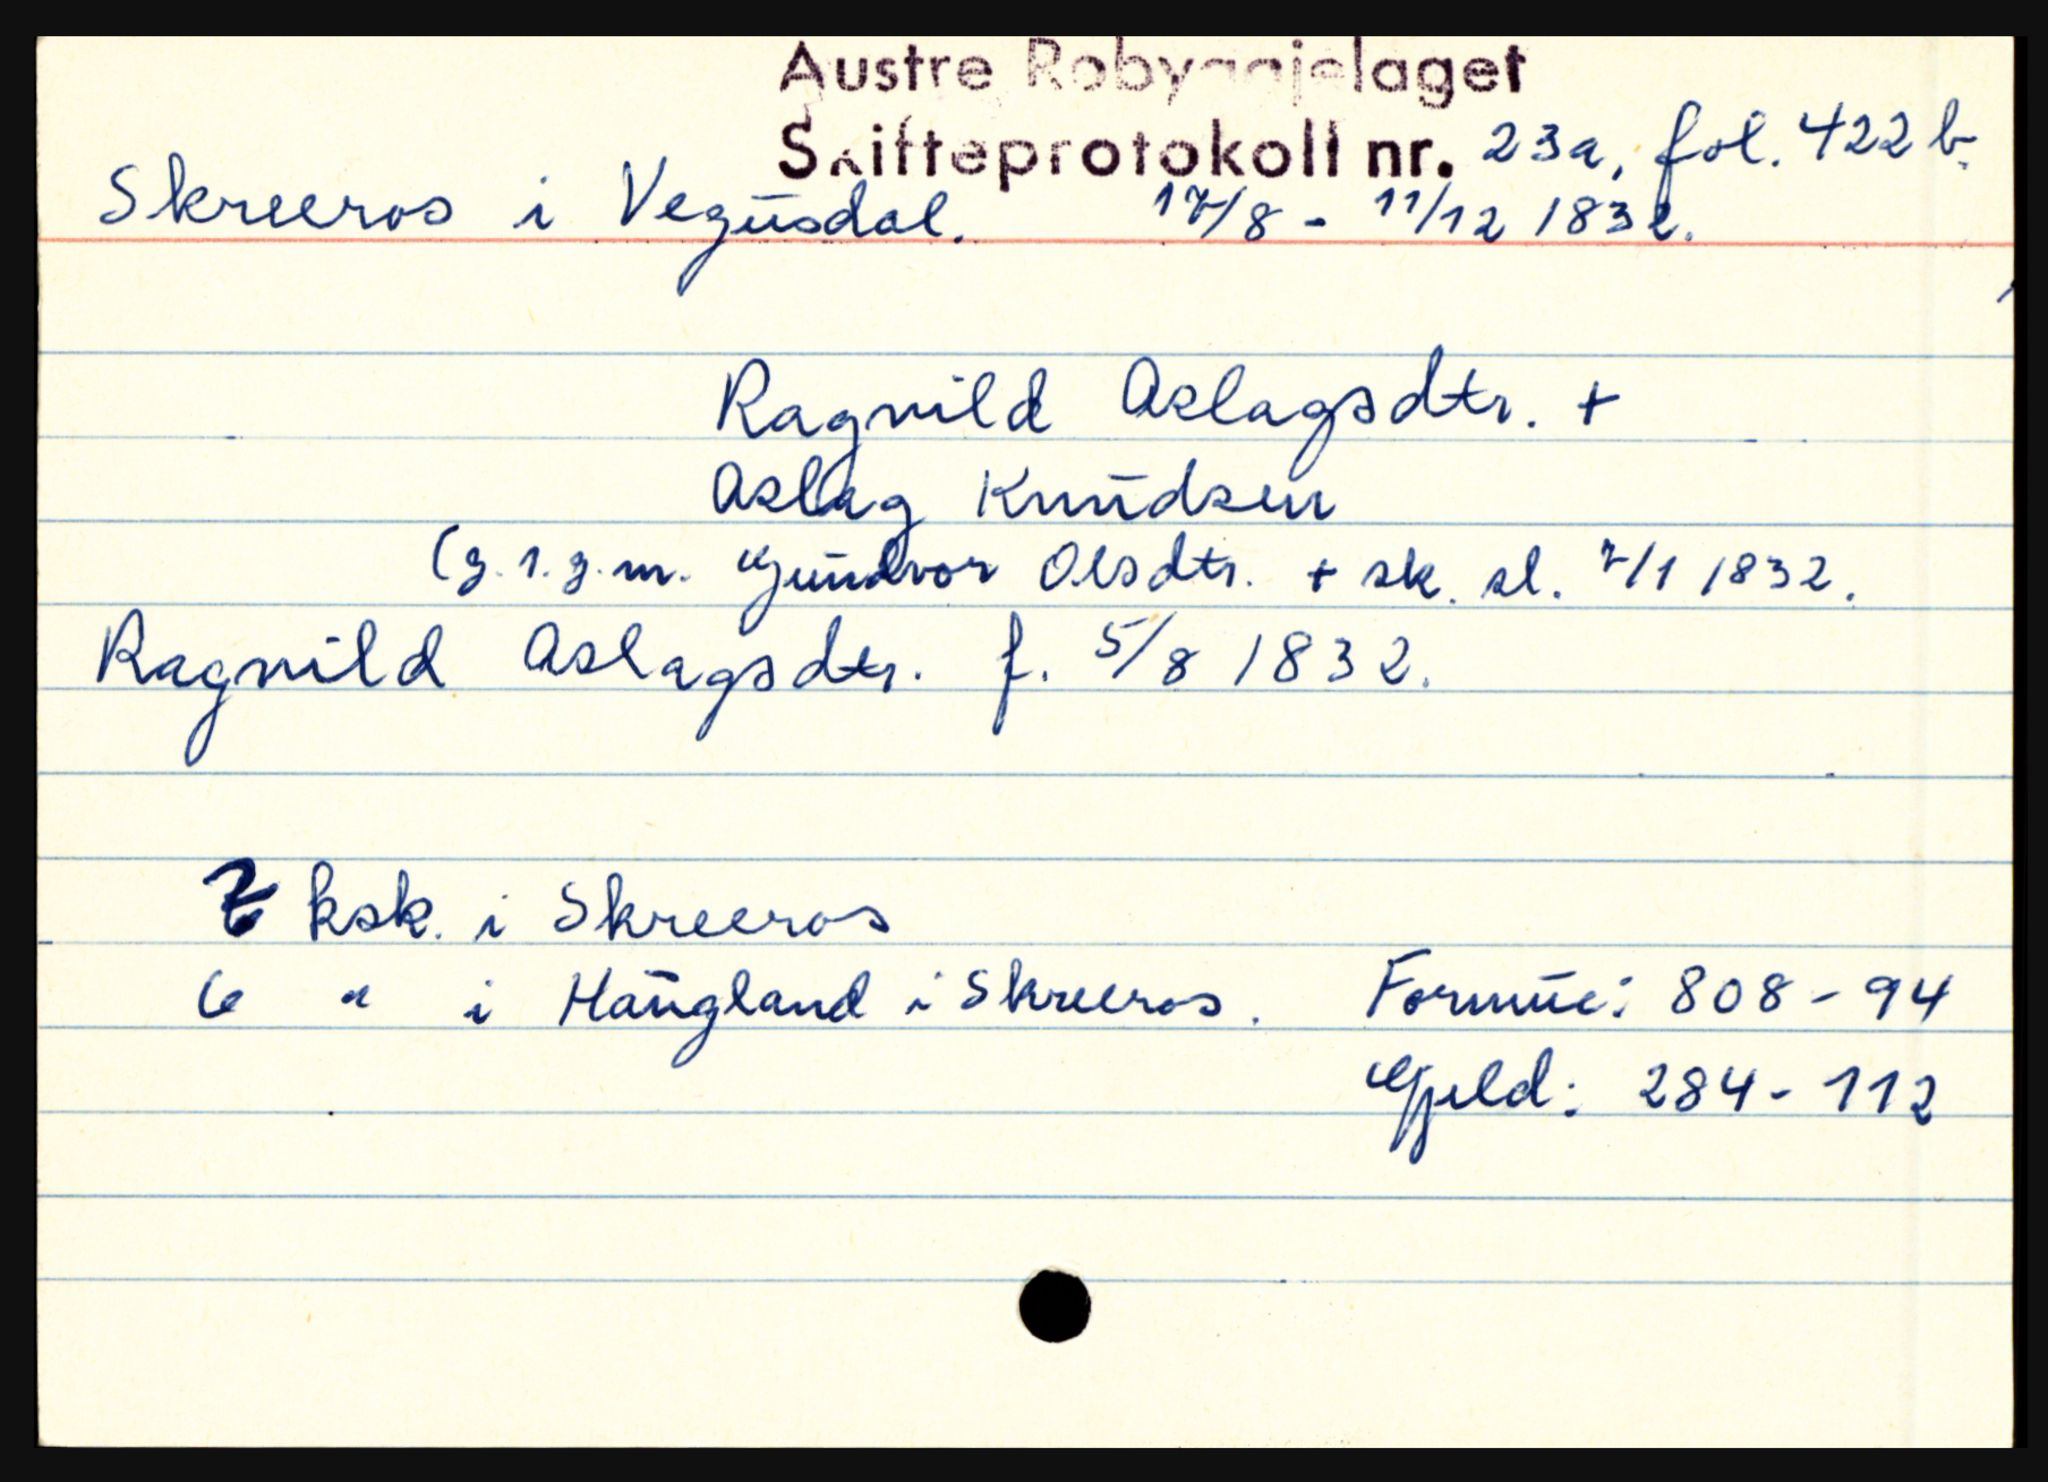 Austre Robyggjelaget
Skifteprotokoll nr. 23a, fol. 422b.
Skreeros i Vegusdal. 17/8 - 11/12 1832.
Ragnild Aslagsdtr. +
Aslag Knudsen
(g. 1. g. m. Gundvor Olsdtr. + sk. sl. 7/1 1832.
Ragnild Aslagsdtr. f. 5/8 1832.
ksk. i Skreeros
6 " i Haugland i Skreeros. Formue: 808-94
Gjeld: 284-112